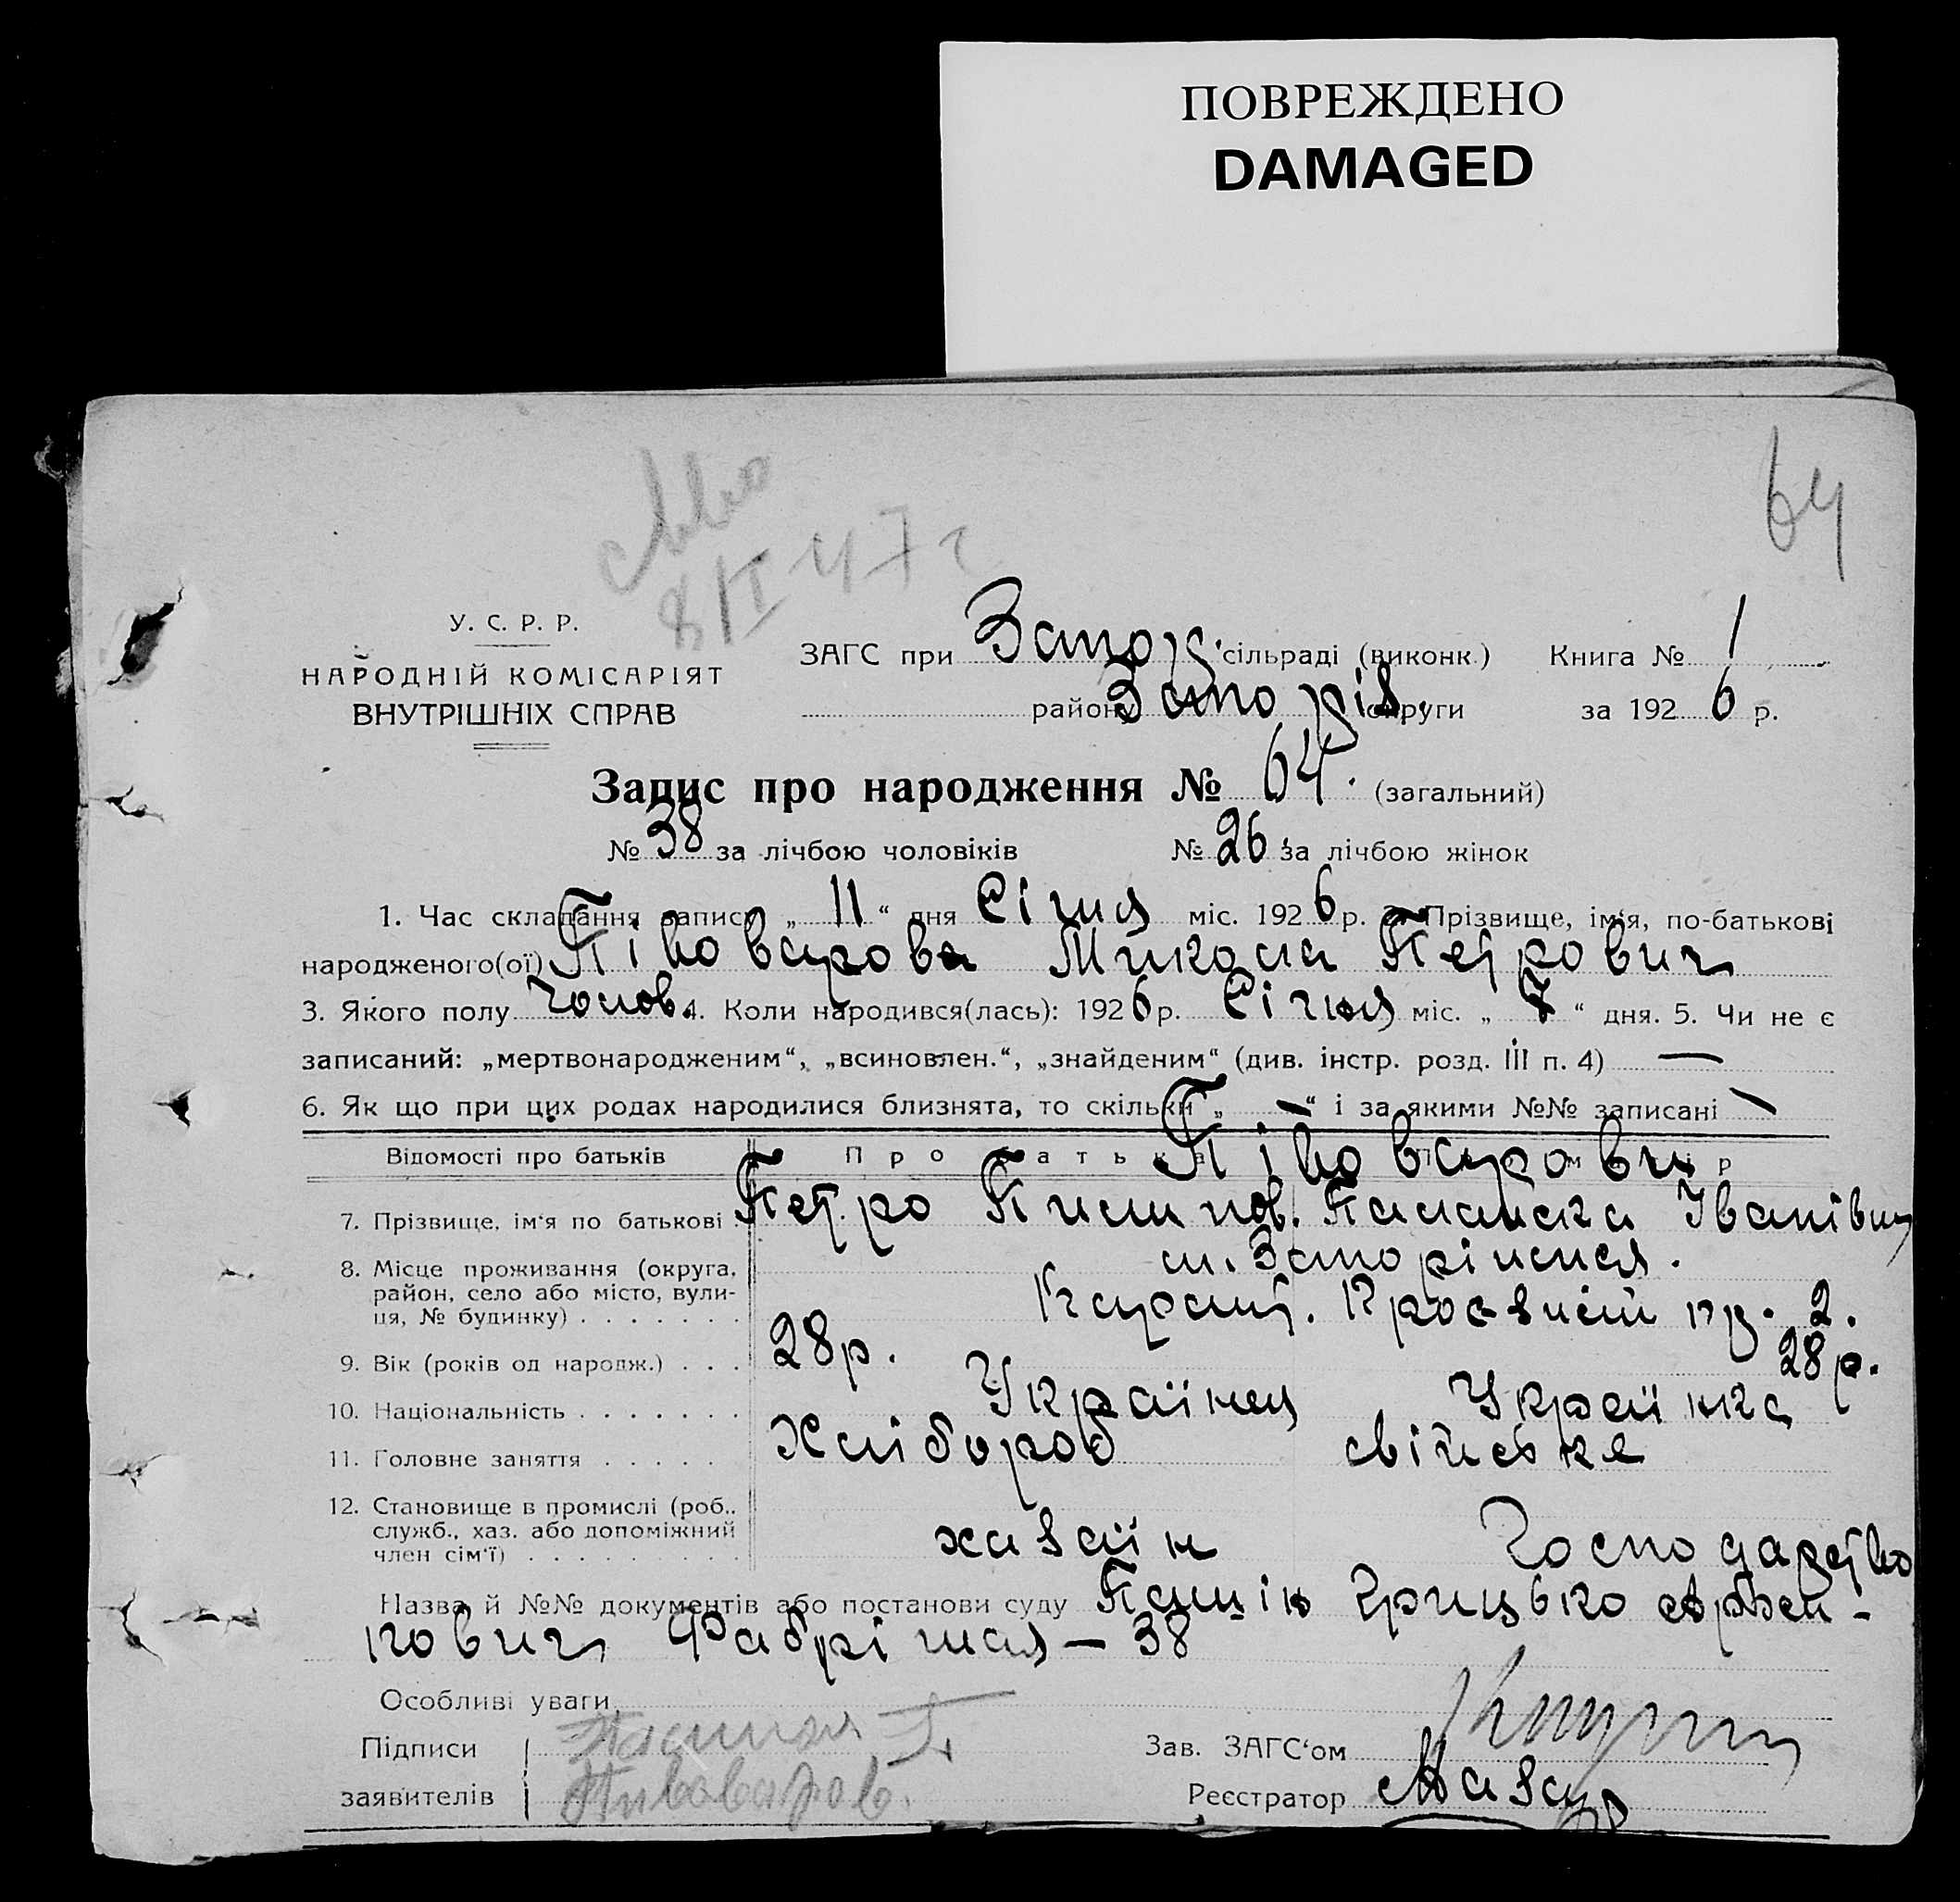 ПОВРЕЖДЕНО
DAMAGED
64
8/I 47 г
У. С. Р. Р.
НАРОДНІЙ КОМІСАРІЯТ
ВНУТРІШНІХ СПРАВ
ЗАГС при Запор. сільраді (виконк.) Книга № 1
район Запоріз. округи за 1926 р.
Запис про народження № 64. (загальний)
№ 38 за лічбою чоловіків № 26 за лічбою жінок
1. Час складання запису „ 11 “ дня Січня міс. 1926 р. 2. Прізвище, ім‘я, по-батькові
народженого(ої) Півоварова Микола Петрович
3. Якого полу чолов. 4. Коли народився(лась): 1926 р. Січня міс. „ 7 “ дня. 5. Чи не є
записаний: „мертвонародженим“, „всиновлен.“, „знайденим“ (див. інстр. розд. III п. 4) —
6. Як що при цих родах народилися близнята, то скільки „ — “ і за якими №№ записані —
Відомості про батьків Про батька Про матір
Півоварови
7. Прізвище, ім‘я по батькові Петро Пилипов. Паланска Іванівна
8. Місце проживання (округа, район, село або місто, вули-ця, № будинку) м. Запоріжжя.
Карант. пр. 2.
9. Вік (років од народж.) 28 р. 28 р.
10. Національність Українец Українка
11. Головне заняття Хлібороб свійське
12. Становище в промислі (роб., служб., хаз. або допоміжний член сім‘ї) хазаїн Господарство
Назва й №№ документів або постанови суду Грицько
кович Фабрічная — 38
Особливі уваги
Підписи
заявителів Пивоваров.
Зав. ЗАГС‘ом
Реєстратор Мазур